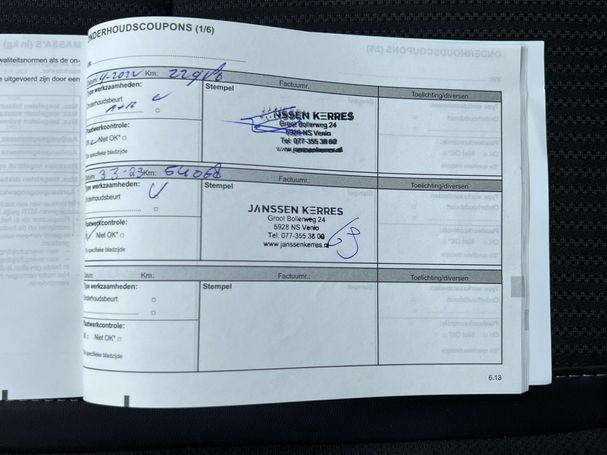 MASSA'S (in kg)
ONDERHOUDSCOUPONS (1/6)
Datum: Km:
Factuurnr.:
Toelichting/diversen
Type werkzaamheden:
Stempel
Onderhoudsbeurt
A+B
JANSSEN KERRES
Groot Bollerweg 24
5928 NS Venlo
Tel: 077-355 38 00
www.janssenkerres.nl
Plaatwerkcontrole:
OK Niet OK*
Zie specifieke bladzijde
Datum: 3-3-23 Km: 54068
Factuurnr.:
Toelichting/diversen
Type werkzaamheden:
Stempel
Onderhoudsbeurt
JANSSEN KERRES
Groot Bollerweg 24
5928 NS Venlo
Tel: 077-355 38 00
www.janssenkerres.nl
Plaatwerkcontrole:
Niet OK*
Zie specifieke bladzijde
Datum: Km:
Factuurnr.:
Toelichting/diversen
Type werkzaamheden:
Stempel
Onderhoudsbeurt
Plaatwerkcontrole:
OK Niet OK*
Zie specifieke bladzijde
6.13
kwaliteitsnormen als de on-
te uitgevoerd zijn door een